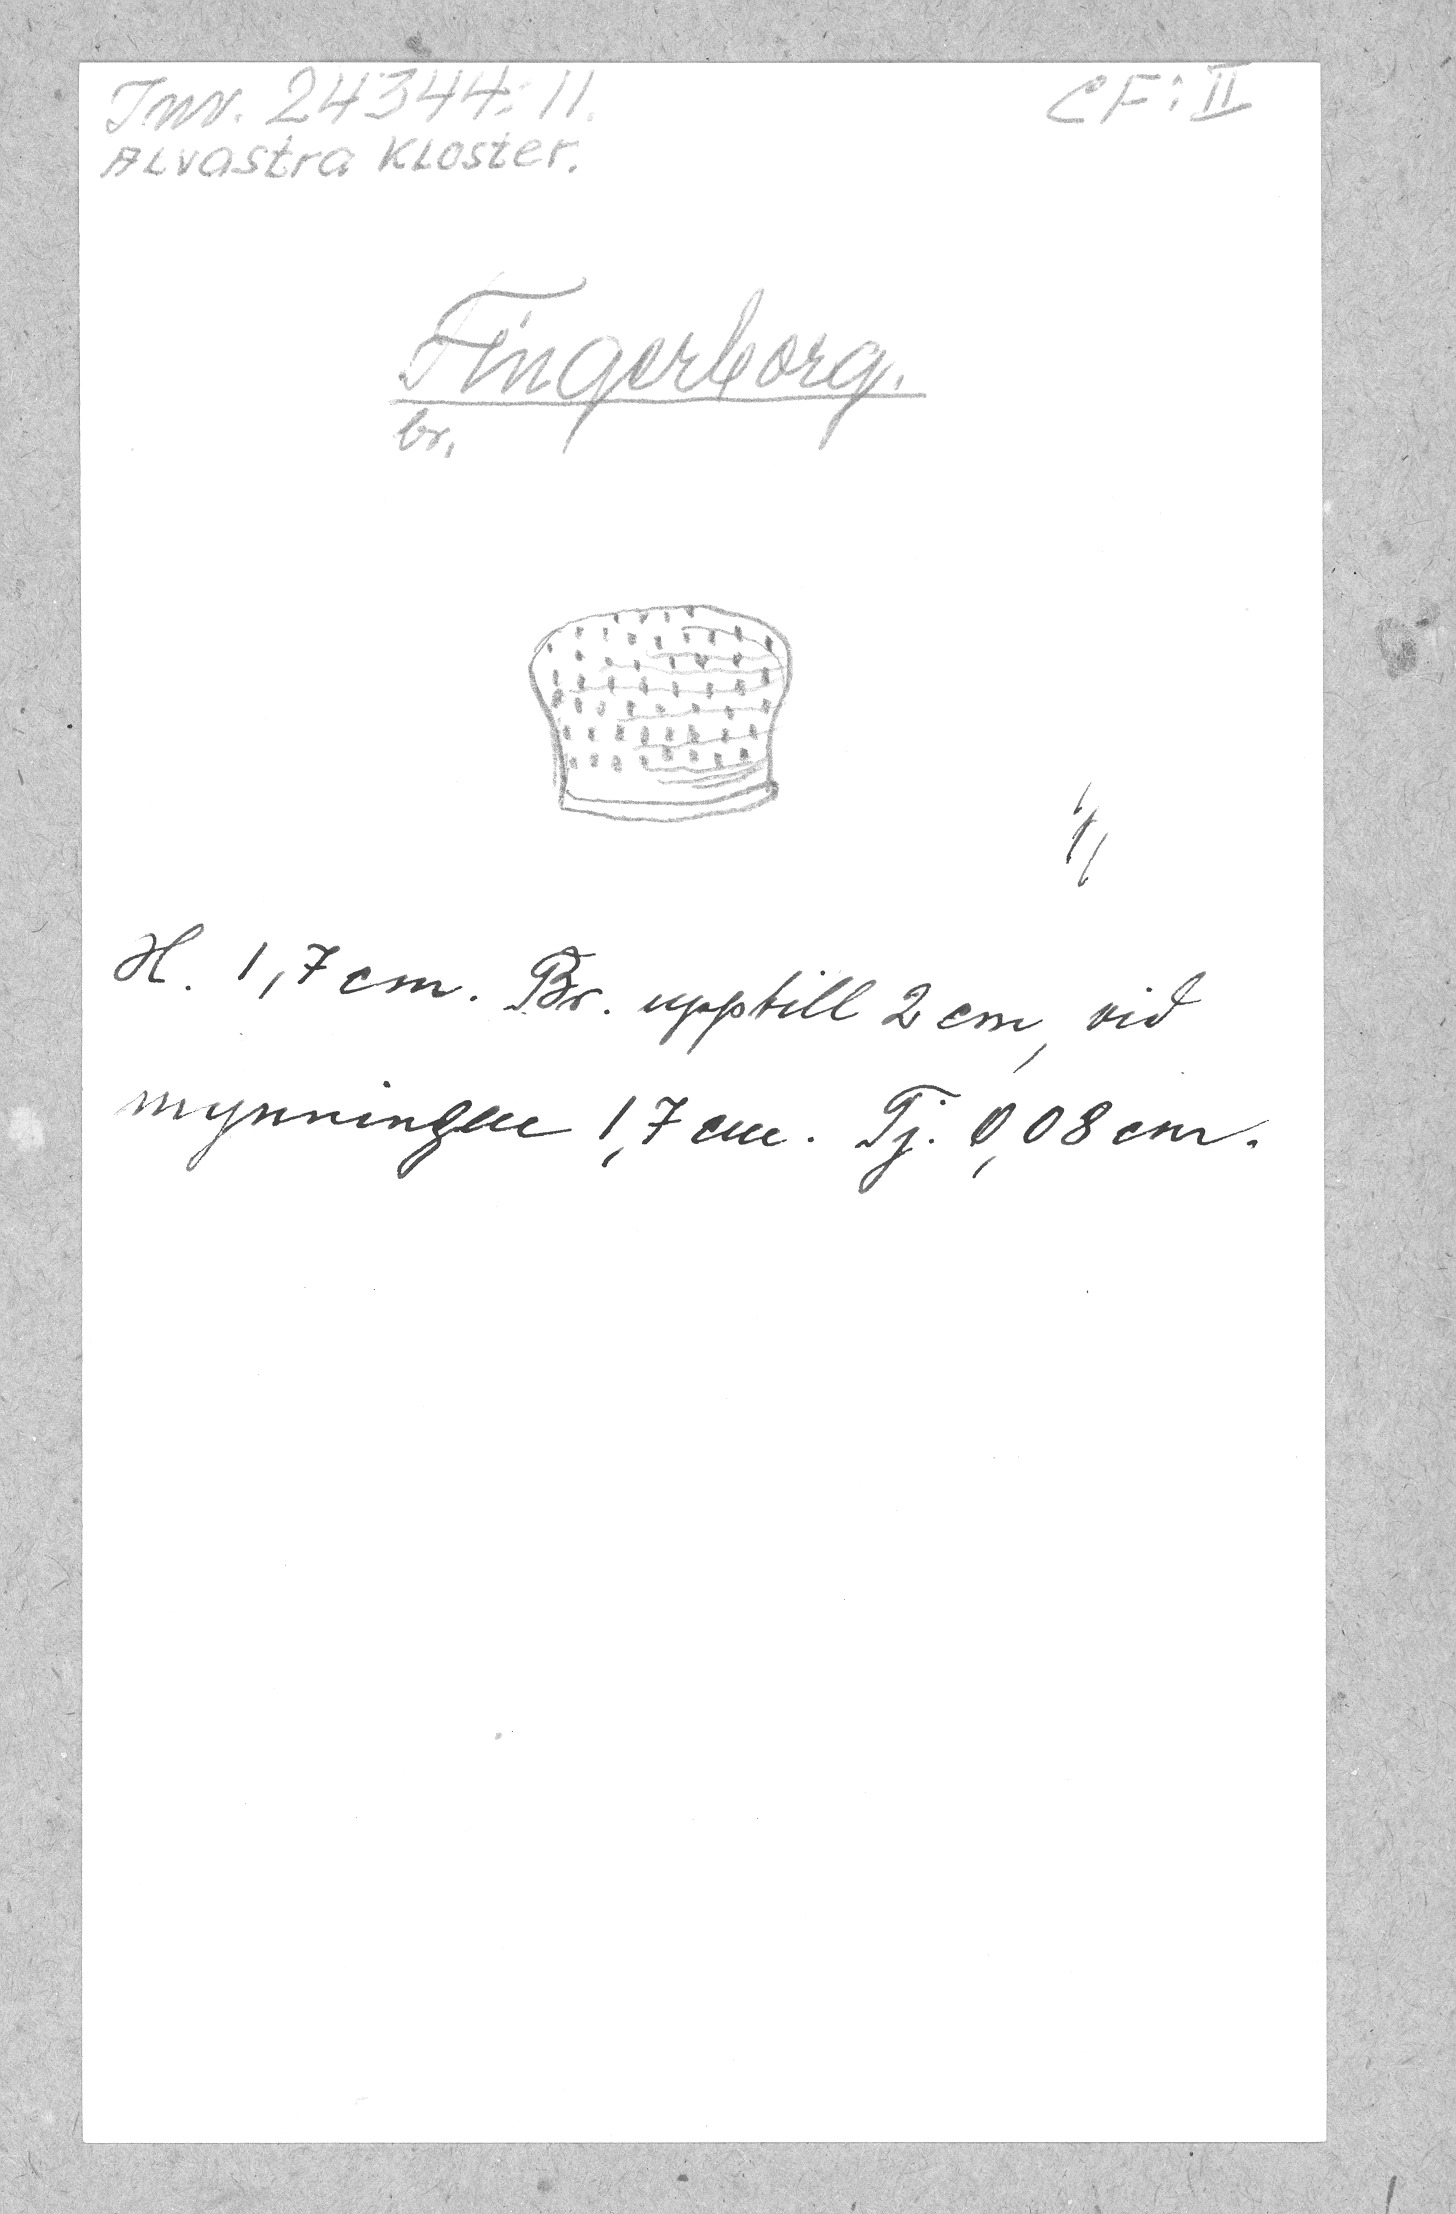 Inv. 24344:11.
CF:II
Alvastra Kloster.
Fingerborg.
br.
1/1
H. 1,7 cm. Br. upptill 2 cm, vid
mynningen 1,7 cm. Tj. 0,08 cm.